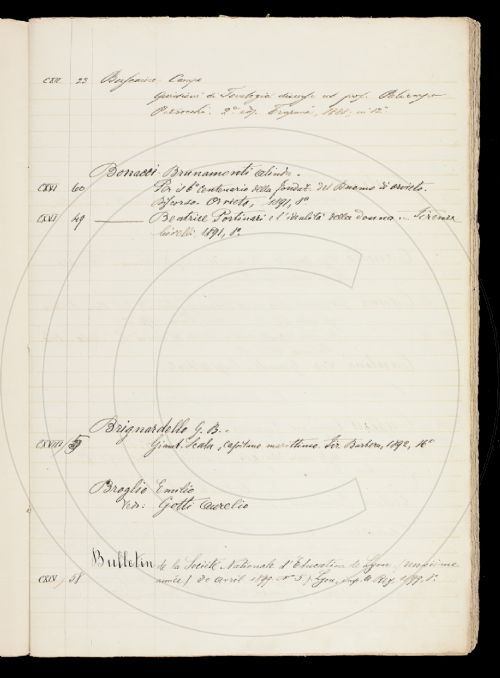 CXII 23
Questioni di Teologia discusse ed prof.
2a edz. in 12°
Bonacci Brunamonti Alinda.
CXVI 60 Per il 6° Centenario della fondaz. del Duomo di Orvieto.
Discorso. Orvieto, 1891, 8°
CXVI 49 ——— Beatrice Portinari e l'idealità della donna. — Firenze
1891, 8°.
Brignardello G. B. -
CXVIII 59 Giamb. Scala, Capitano marittimo. Fir. Barbera, 1892, 16°
Broglio Emilio
Vedi: Gotti Aurelio
Bulletin de la Société Nationale d'Education de Lyon (
CXIX 58 année) Avril 1899 N° 3) Lyon, Imp. A. Rey, 1899, 8°.